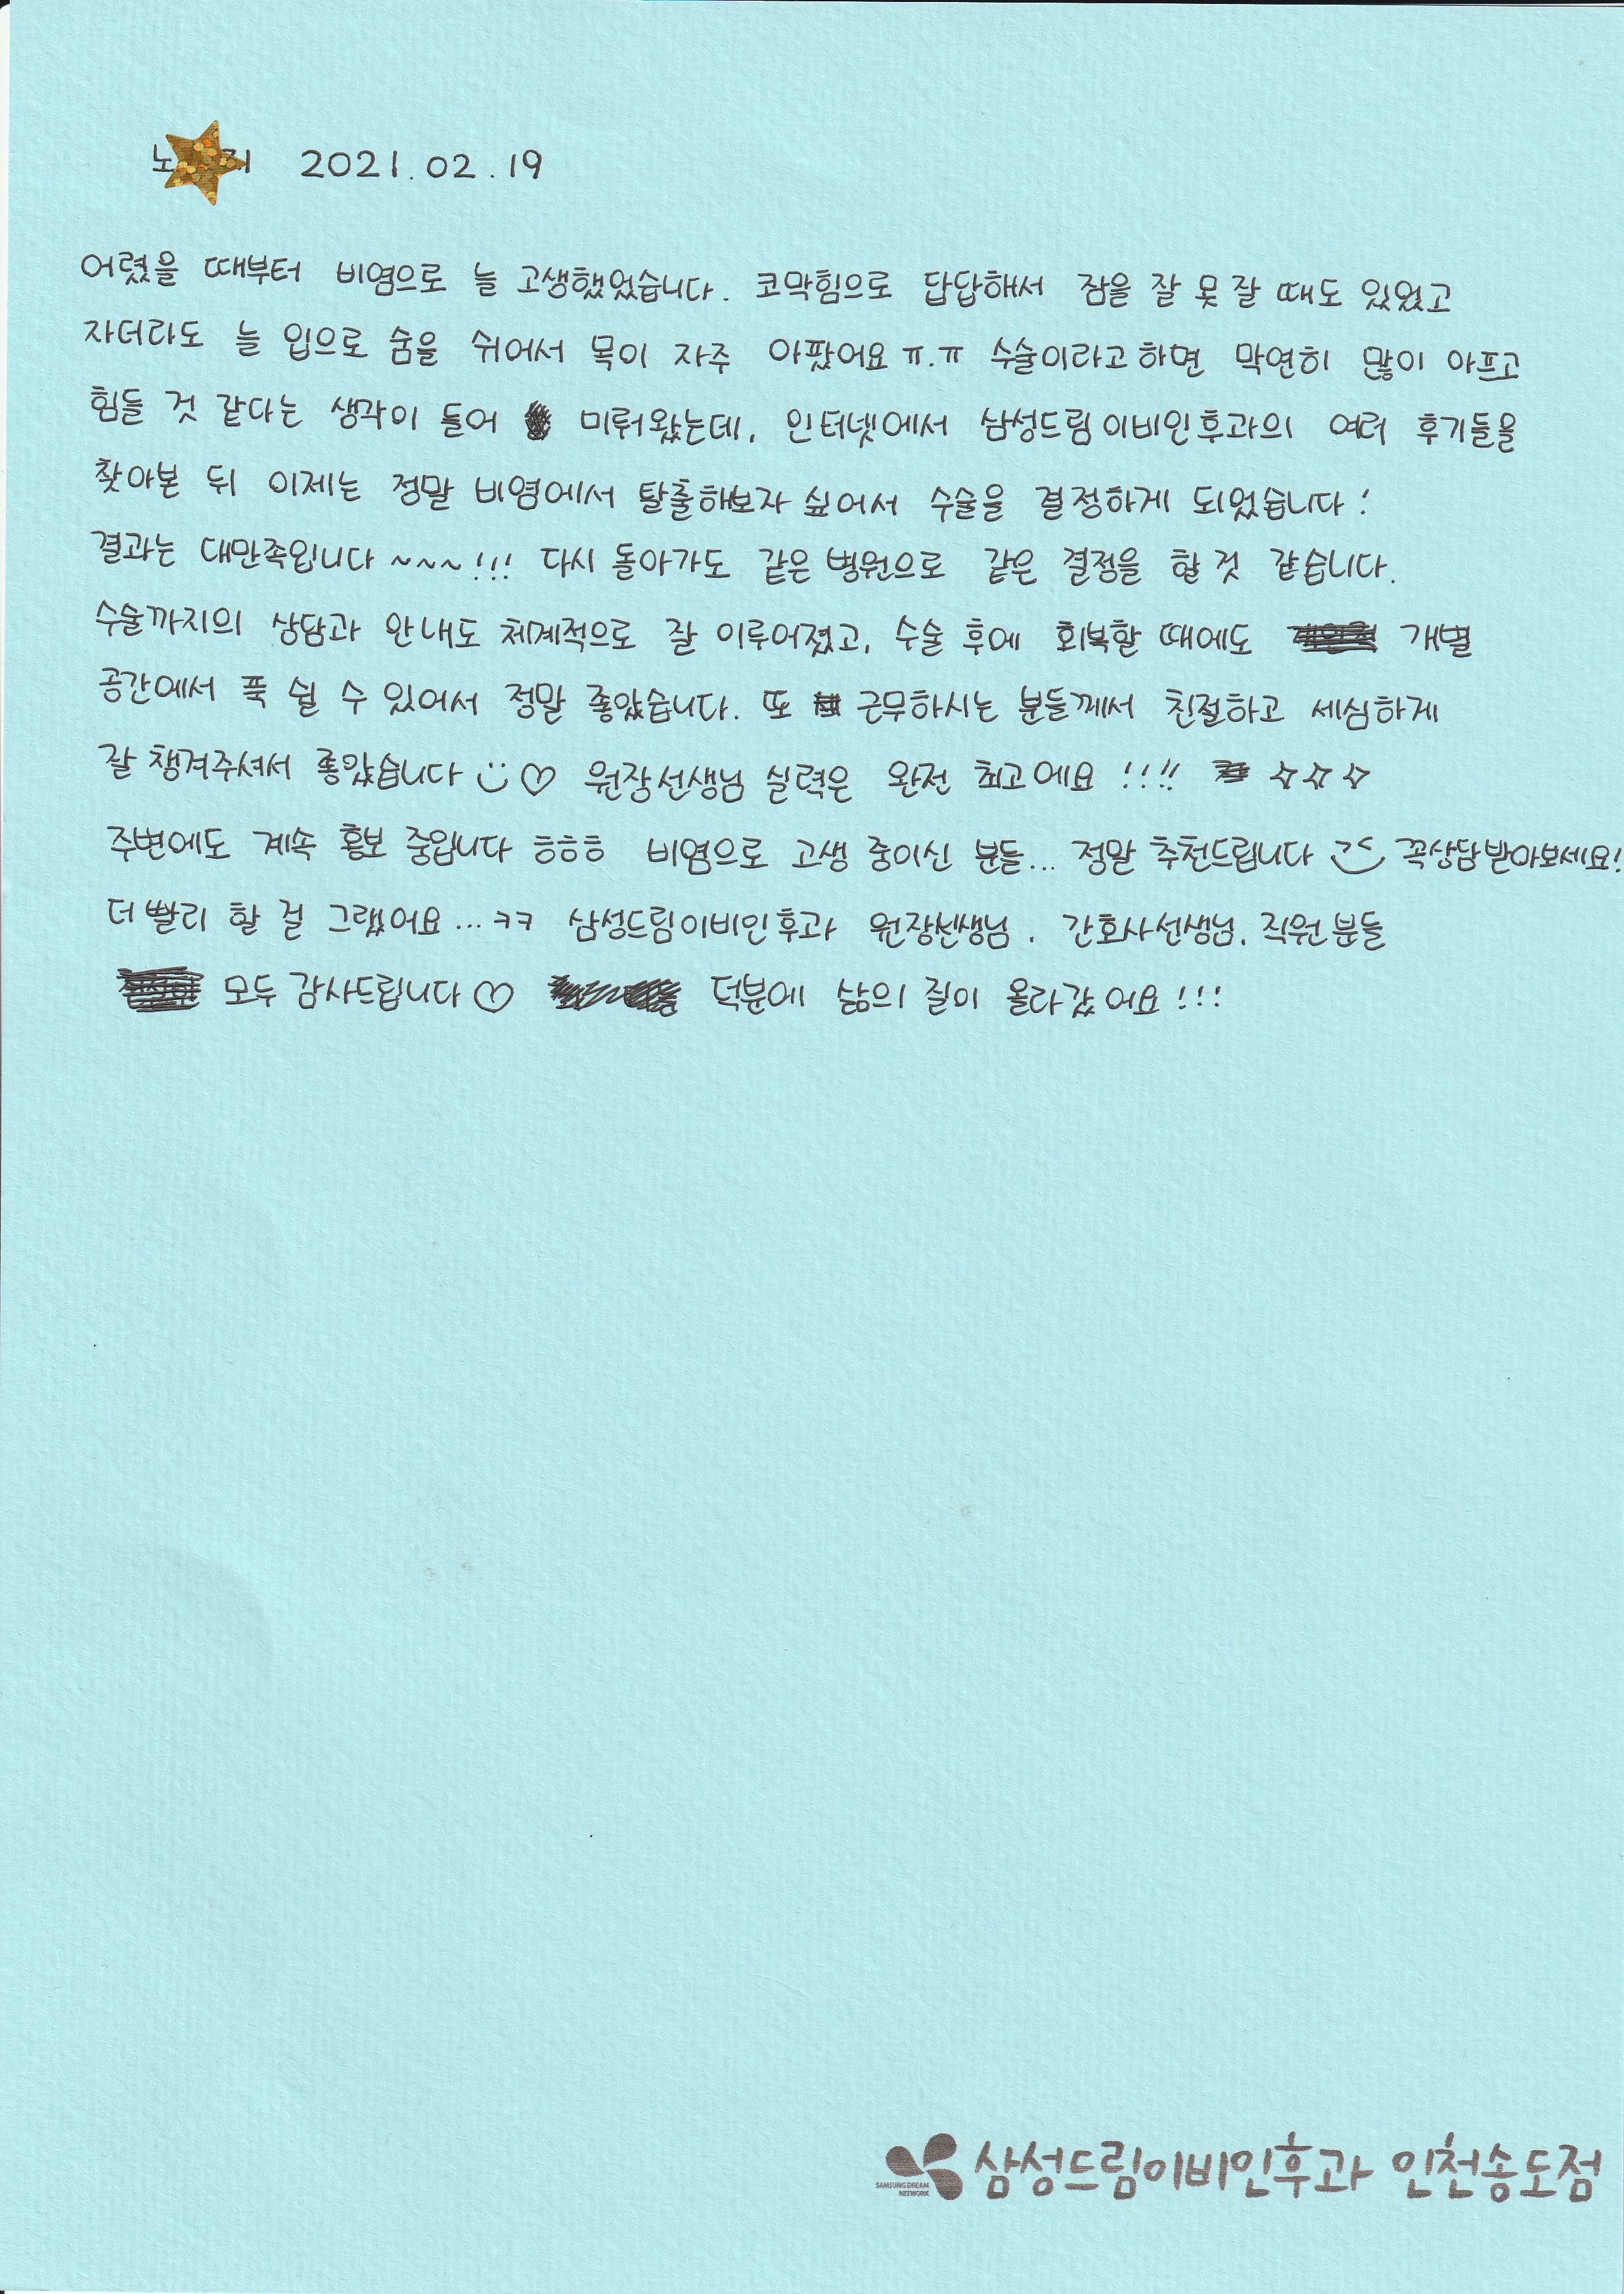 2021.02.19
어렸을 때부터 비염으로 늘 고생했었습니다. 코막힘으로 답답해서 잠을 잘 못 잘 때도 있었고
자더라도 늘 입으로 숨을 쉬어서 목이 자주 아팠어요 ㅠ.ㅠ 수술이라고 하면 막연히 많이 아프고
힘들 것 같다는 생각이 들어 미뤄왔는데, 인터넷에서 삼성드림이비인후과의 여러 후기들을
찾아본 뒤 이제는 정말 비염에서 탈출해보자 싶어서 수술을 결정하게 되었습니다!
결과는 대만족입니다 ~~~!!! 다시 돌아가도 같은 병원으로 같은 결정을 할 것 같습니다.
수술까지의 상담과 안내도 체계적으로 잘 이루어졌고, 수술 후에 회복할 때에도 개별
공간에서 푹 쉴 수 있어서 정말 좋았습니다. 또 근무하시는 분들께서 친절하고 세심하게
잘 챙겨주셔서 좋았습니다 ♡ 원장선생님 실력은 완전 최고에요 !!!! ☆☆☆
주변에도 계속 홍보 중입니다 ㅎㅎㅎ 비염으로 고생 중이신 분들... 정말 추천드립니다 꼭상담받아보세요!
더 빨리 할 걸 그랬어요...ㅋㅋ 삼성드림이비인후과 원장선생님, 간호사선생님, 직원분들
모두 감사드립니다 ♡ 덕분에 삶의 질이 올라갔어요!!!
삼성드림이비인후과 인천송도점
SAMSUNG DREAM
NETWORK